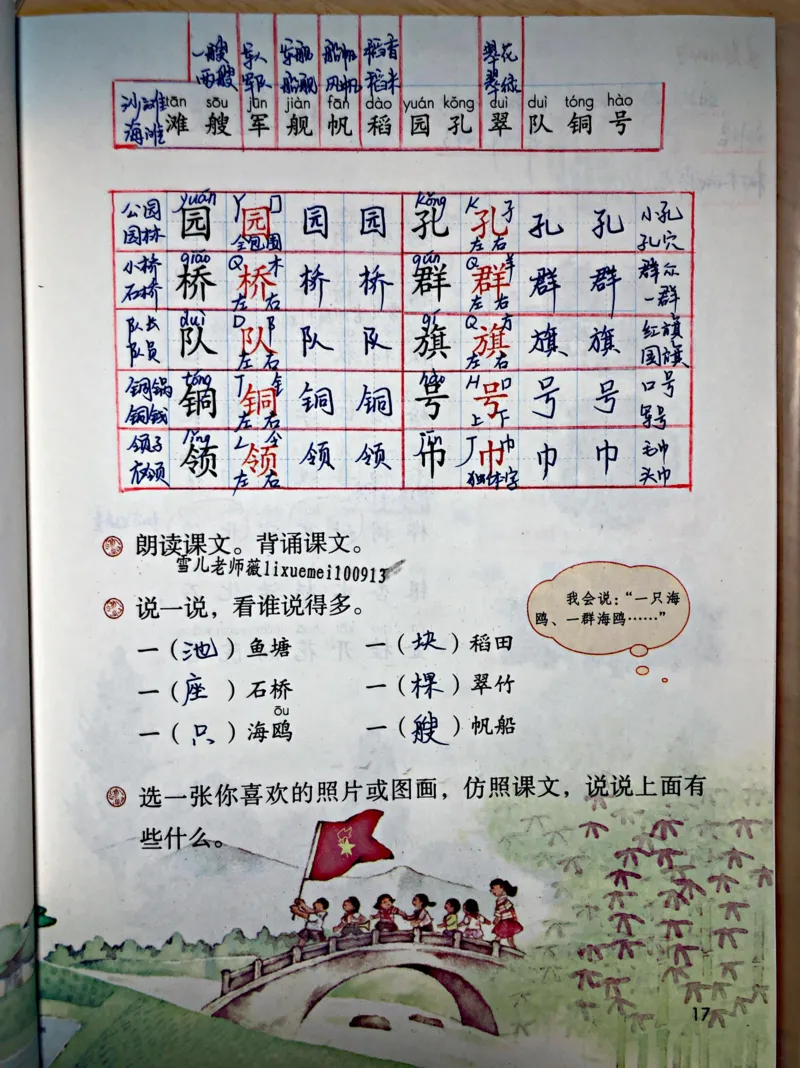 一艘 军人 军舰 船帆 稻香 翠花
两艘 军队 船舰 风帆 稻米 翠绿
沙滩 tān sōu jūn jiàn fān dào yuán kǒng duì duì tóng hào
海滩 滩 艘 军 舰 帆 稻 园 孔 翠 队 铜 号
公园 yuán 园 Y 囗 园 园 园 kǒng 孔 K 子 孔 孔 孔 小孔
园林 全包围 左右 孔穴
小桥 qiáo 桥 Q 木 桥 桥 桥 qún 群 Q 羊 群 群 群 群众
石桥 左右 左右 一群
队长 duì 队 D 阝 队 队 队 qí 旗 Q 方 旗 旗 旗 红旗
队员 左右 左右 国旗
铜锅 tóng 铜 T 钅 铜 铜 铜 hào 号 H 口 号 号 号 口号
铜钱 左右 上下 军号
领子 lǐng 领 L 令 领 领 领 jīn 巾 J 巾 巾 巾 巾 毛巾
衣领 左右 独体字 头巾
朗读课文。背诵课文。
雪儿老师薇lixuemei100913
说一说，看谁说得多。
我会说：“一只海
鸥、一群海鸥……”
一（池）鱼塘 一（块）稻田
一（座）石桥 一（棵）翠竹
ōu
一（只）海鸥 一（艘）帆船
选一张你喜欢的照片或图画，仿照课文，说说上面有
些什么。
17